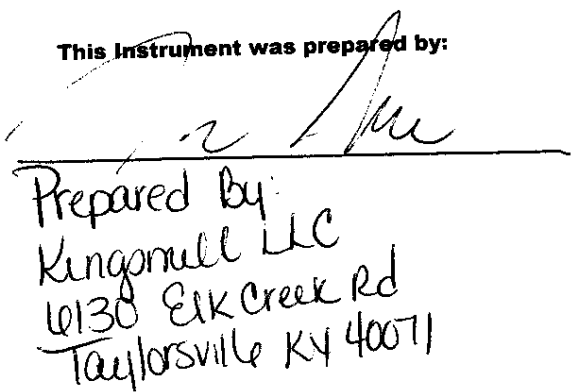 This Instrument was prepared by:
Prepared By:
Kingsmill LLC
6130 Elk Creek Rd
Taylorsville KY 40071